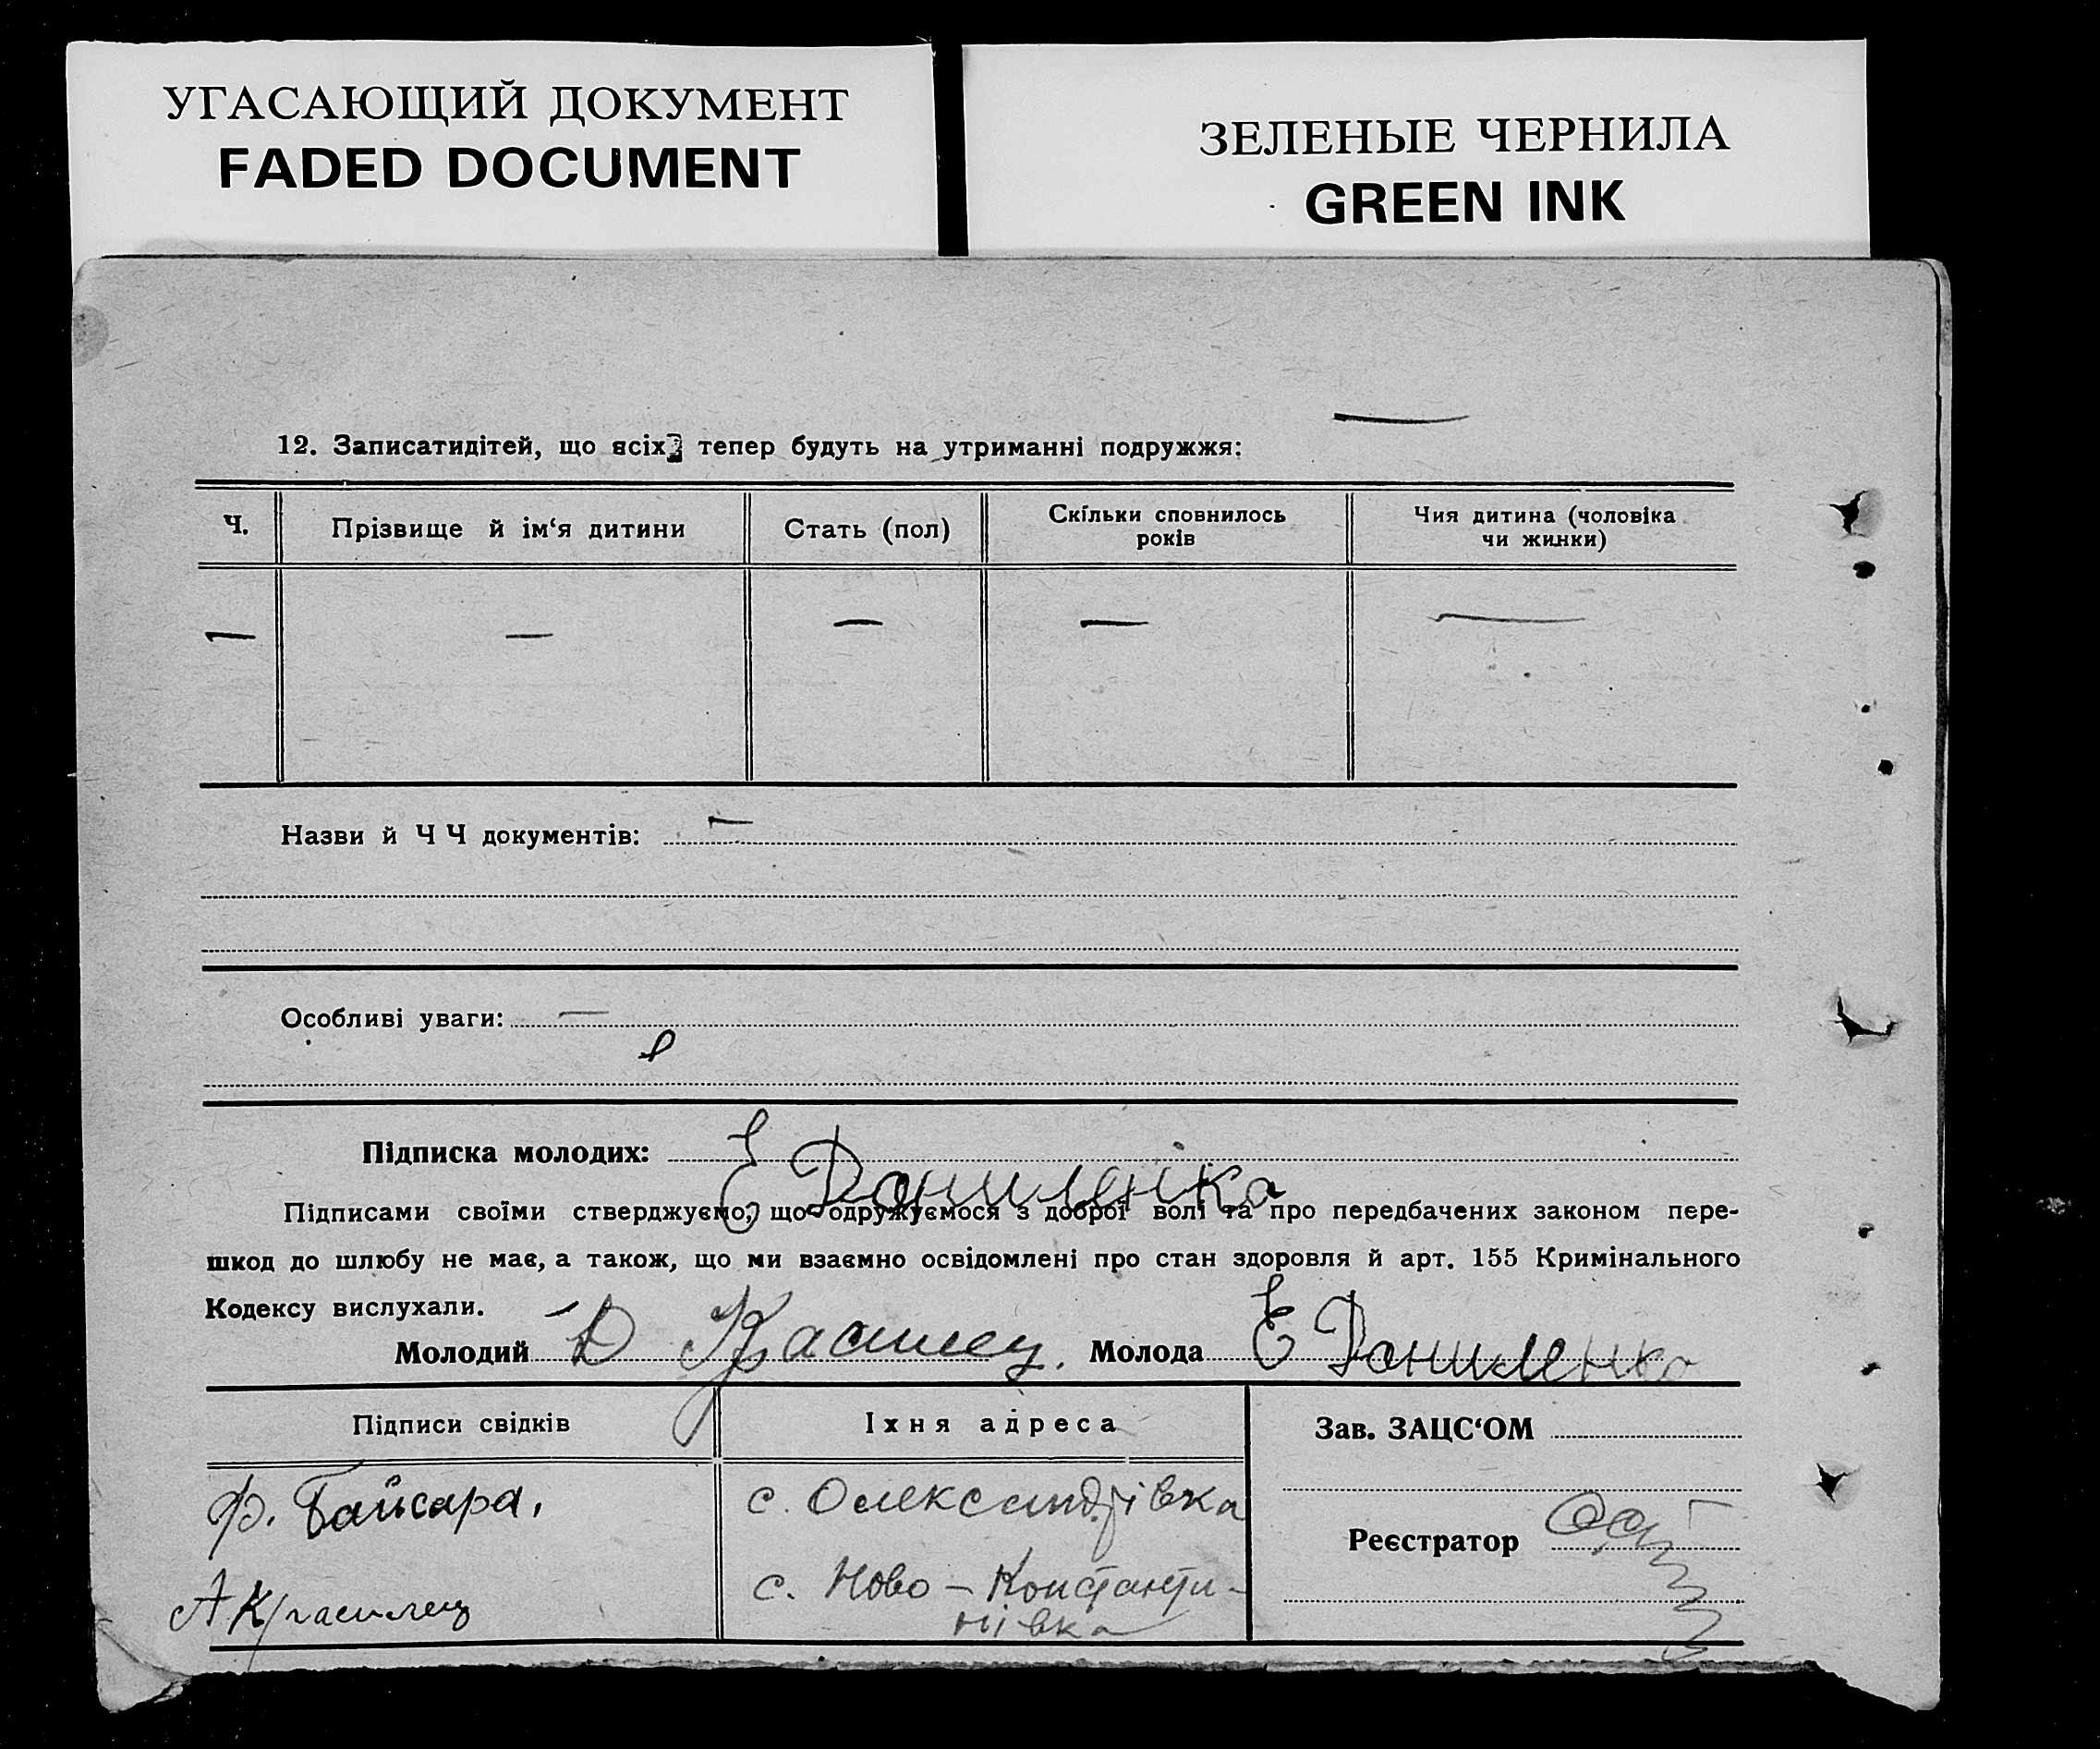 УГАСАЮЩИЙ ДОКУМЕНТ
FADED DOCUMENT
ЗЕЛЕНЫЕ ЧЕРНИЛА
GREEN INK
12. Записатидітей, що всіх тепер будуть на утриманні подружжя:
Ч. Прізвище й ім‘я дитини Стать (пол) Скільки сповнилось років Чия дитина (чоловіка чи жинки)
— — — — —
Назви й Ч Ч документів: —
Особливі уваги: —
Підписка молодих: Е Даниленко
Підписами своїми стверджуємо, що одружуємося з доброї волі та про передбачених законом пере-
шкод до шлюбу не має, а також, що ми взаємно освідомлені про стан здоровля й арт. 155 Кримінального
Кодексу вислухали.
Молодий Д Красилец. Молода Е Даниленко
Підписи свідків Їхня адреса Зав. ЗАЦС‘ОМ
Ф. Байсара, с. Олександрівка
Реєстратор
А Красилец с. Ново – Константи-
нівка